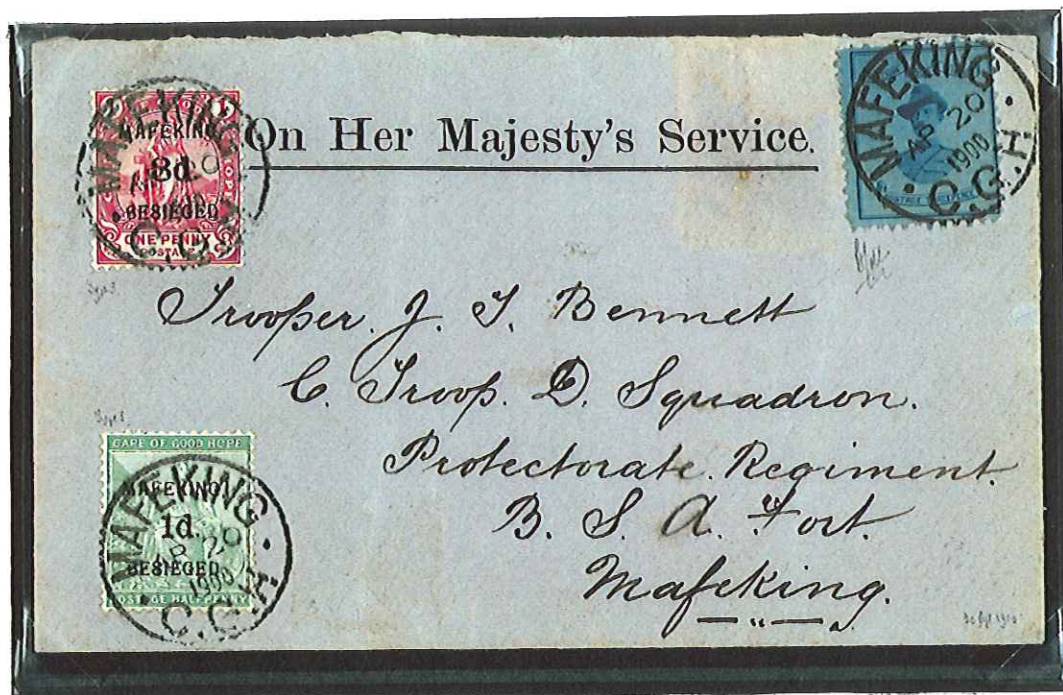 MAFEKING
AP 20
1900
C.G.H
MAFEKING
3d.
BESIEGED
ONE PENNY
POSTAGE
On Her Majesty's Service.
MAFEKING
AP 20
1900
C.G.H
POSTAGE
Trooper. J. T. Bennett
C. Troop. D. Squadron.
Protectorate. Regiment.
B. S. A. Fort.
Mafeking.
CAPE OF GOOD HOPE
MAFEKING,
1d.
BESIEGED.
POSTAGE HALFPENNY
MAFEKING
AP 20
1900
C.G.H